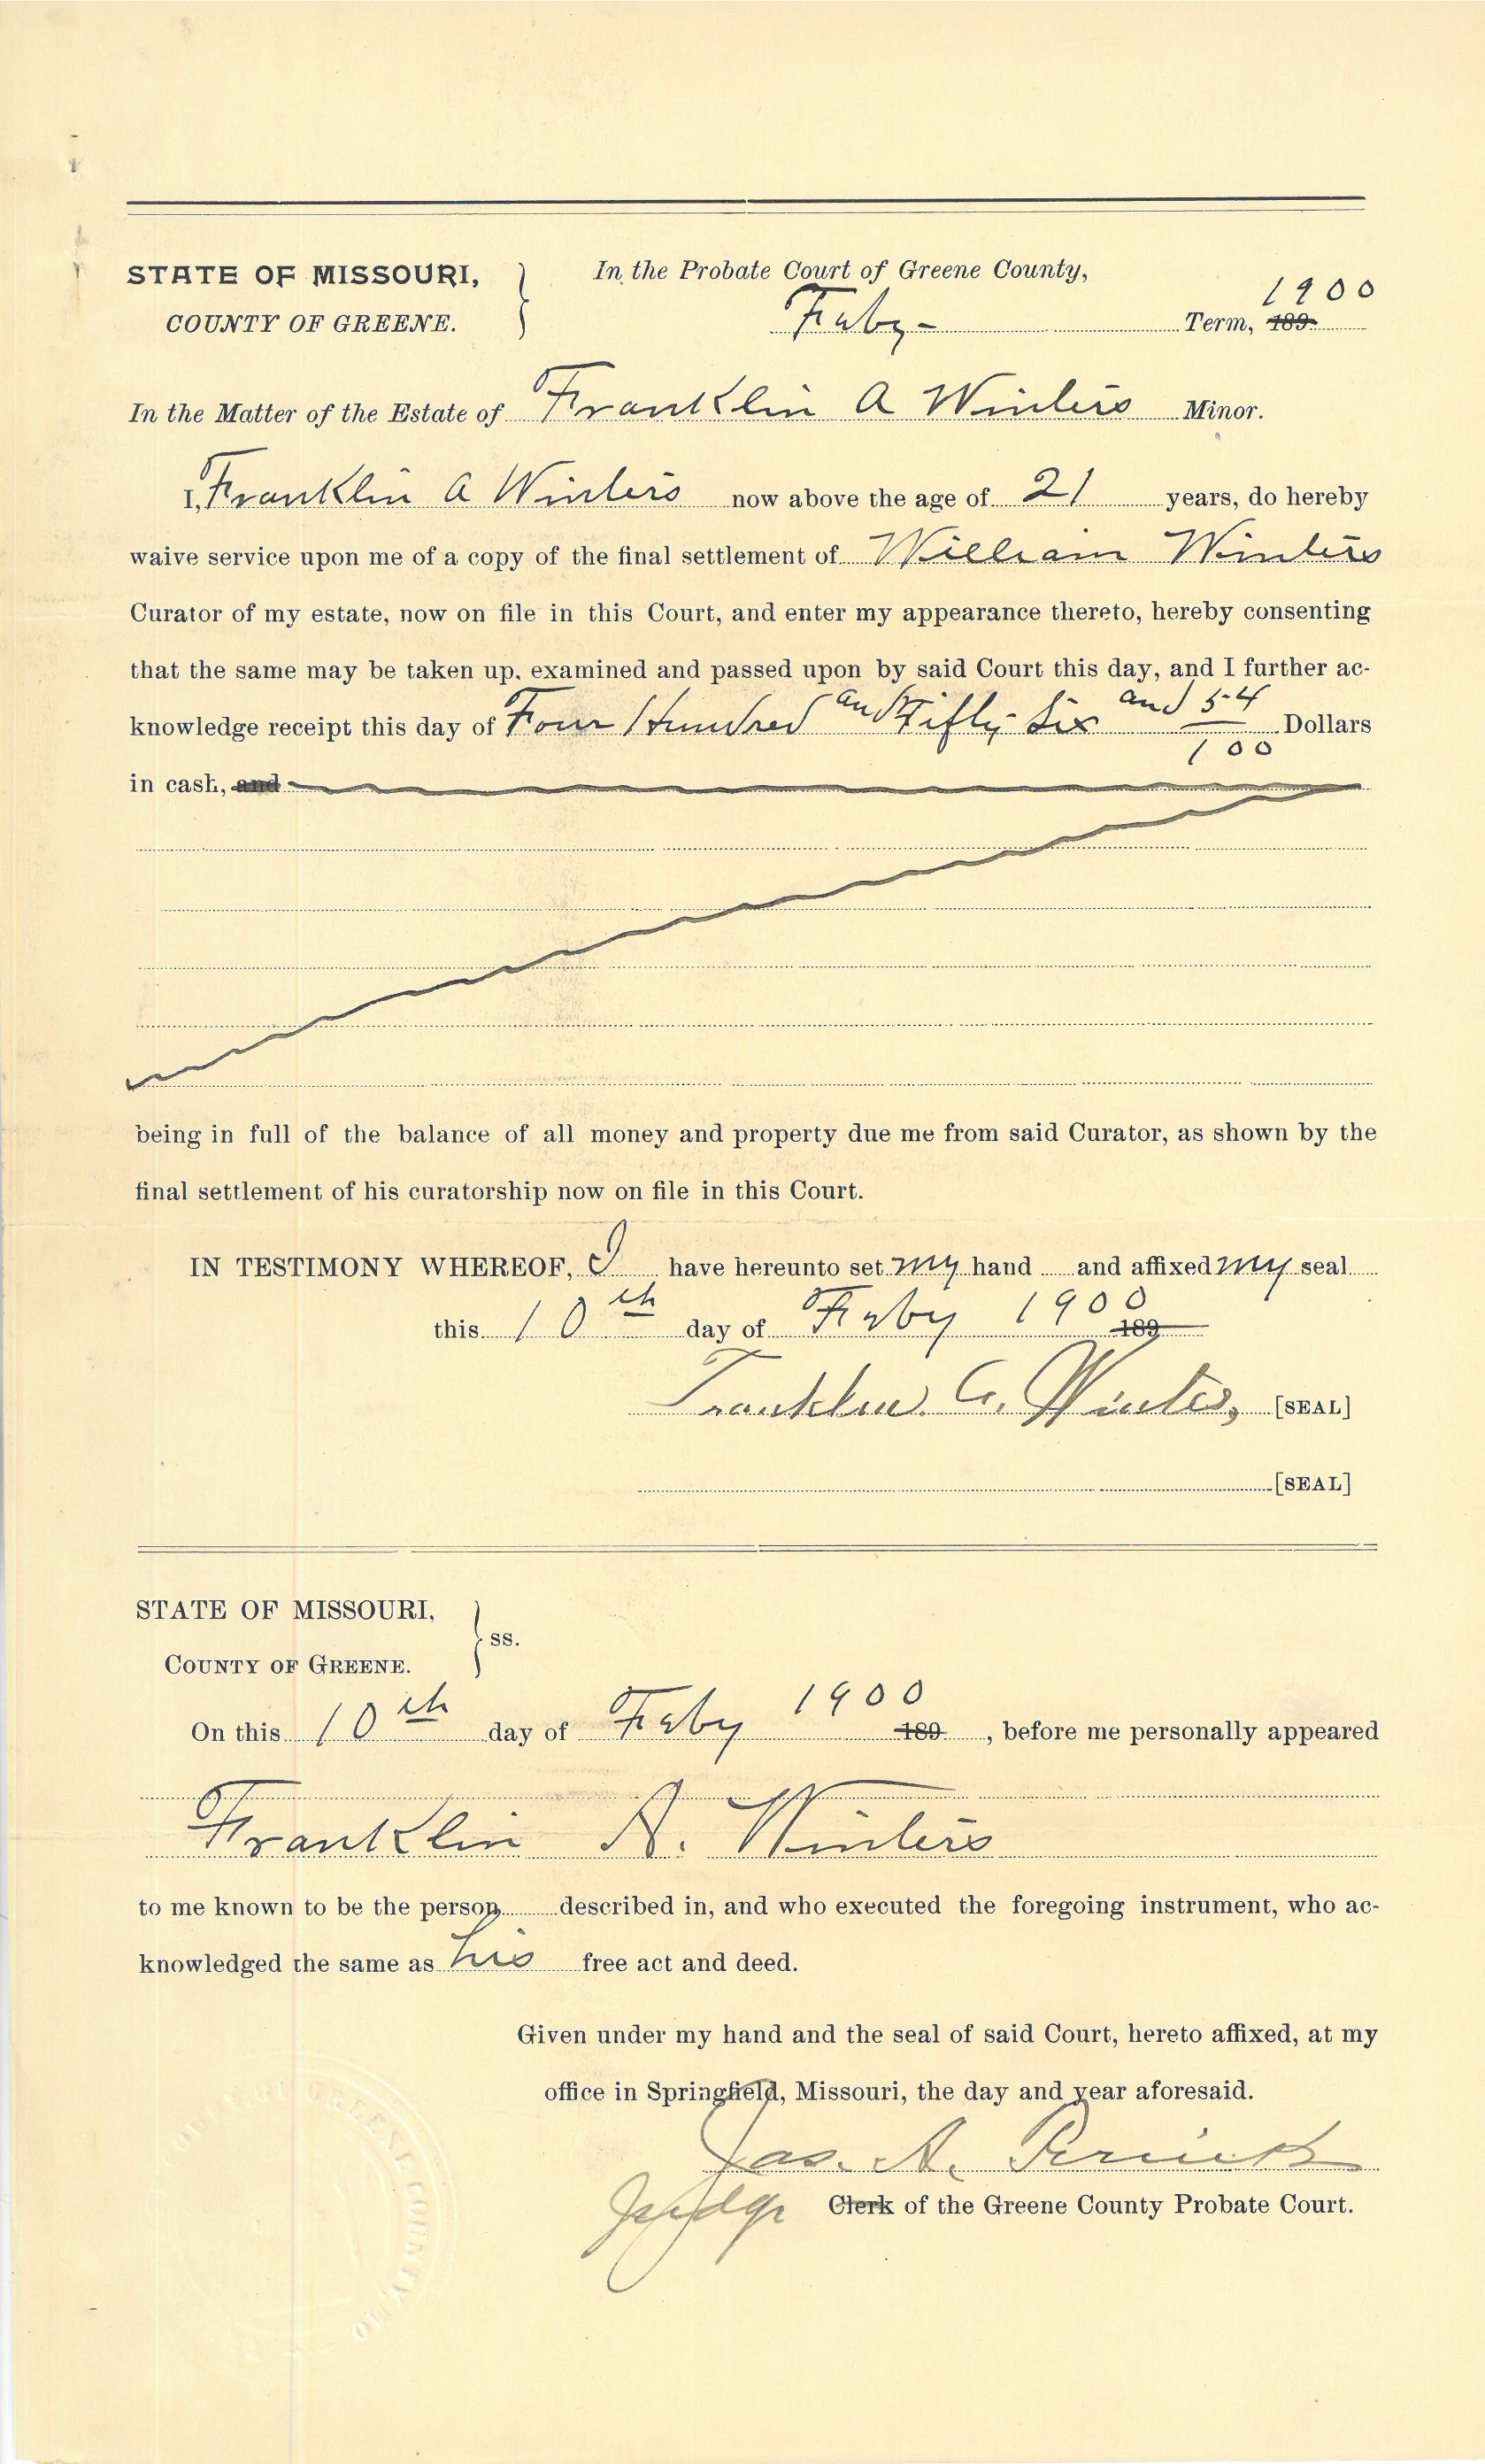 STATE OF MISSOURI, } In the Probate Court of Greene County,
COUNTY OF GREENE. Feby- Term, 189 1900
In the Matter of the Estate of Franklin A Winters Minor.
I, Franklin A Winters now above the age of 21 years, do hereby
waive service upon me of a copy of the final settlement of William Winters
Curator of my estate, now on file in this Court, and enter my appearance thereto, hereby consenting
that the same may be taken up, examined and passed upon by said Court this day, and I further ac-
knowledge receipt this day of Four Hundred and Fifty-Six and 54/100 Dollars
in cash, and
being in full of the balance of all money and property due me from said Curator, as shown by the
final settlement of his curatorship now on file in this Court.
IN TESTIMONY WHEREOF, I have hereunto set my hand and affixed my seal
this 10th day of Feby 1900 189
Franklin A. Winters, [SEAL]
[SEAL]
STATE OF MISSOURI, } ss.
COUNTY OF GREENE.
On this 10th day of Feby 1900 189 , before me personally appeared
Franklin A. Winters
to me known to be the person described in, and who executed the foregoing instrument, who ac-
knowledged the same as his free act and deed.
Given under my hand and the seal of said Court, hereto affixed, at my
office in Springfield, Missouri, the day and year aforesaid.
Jas. A.
Judge Clerk of the Greene County Probate Court.
OF GREENE COUNTY, MO